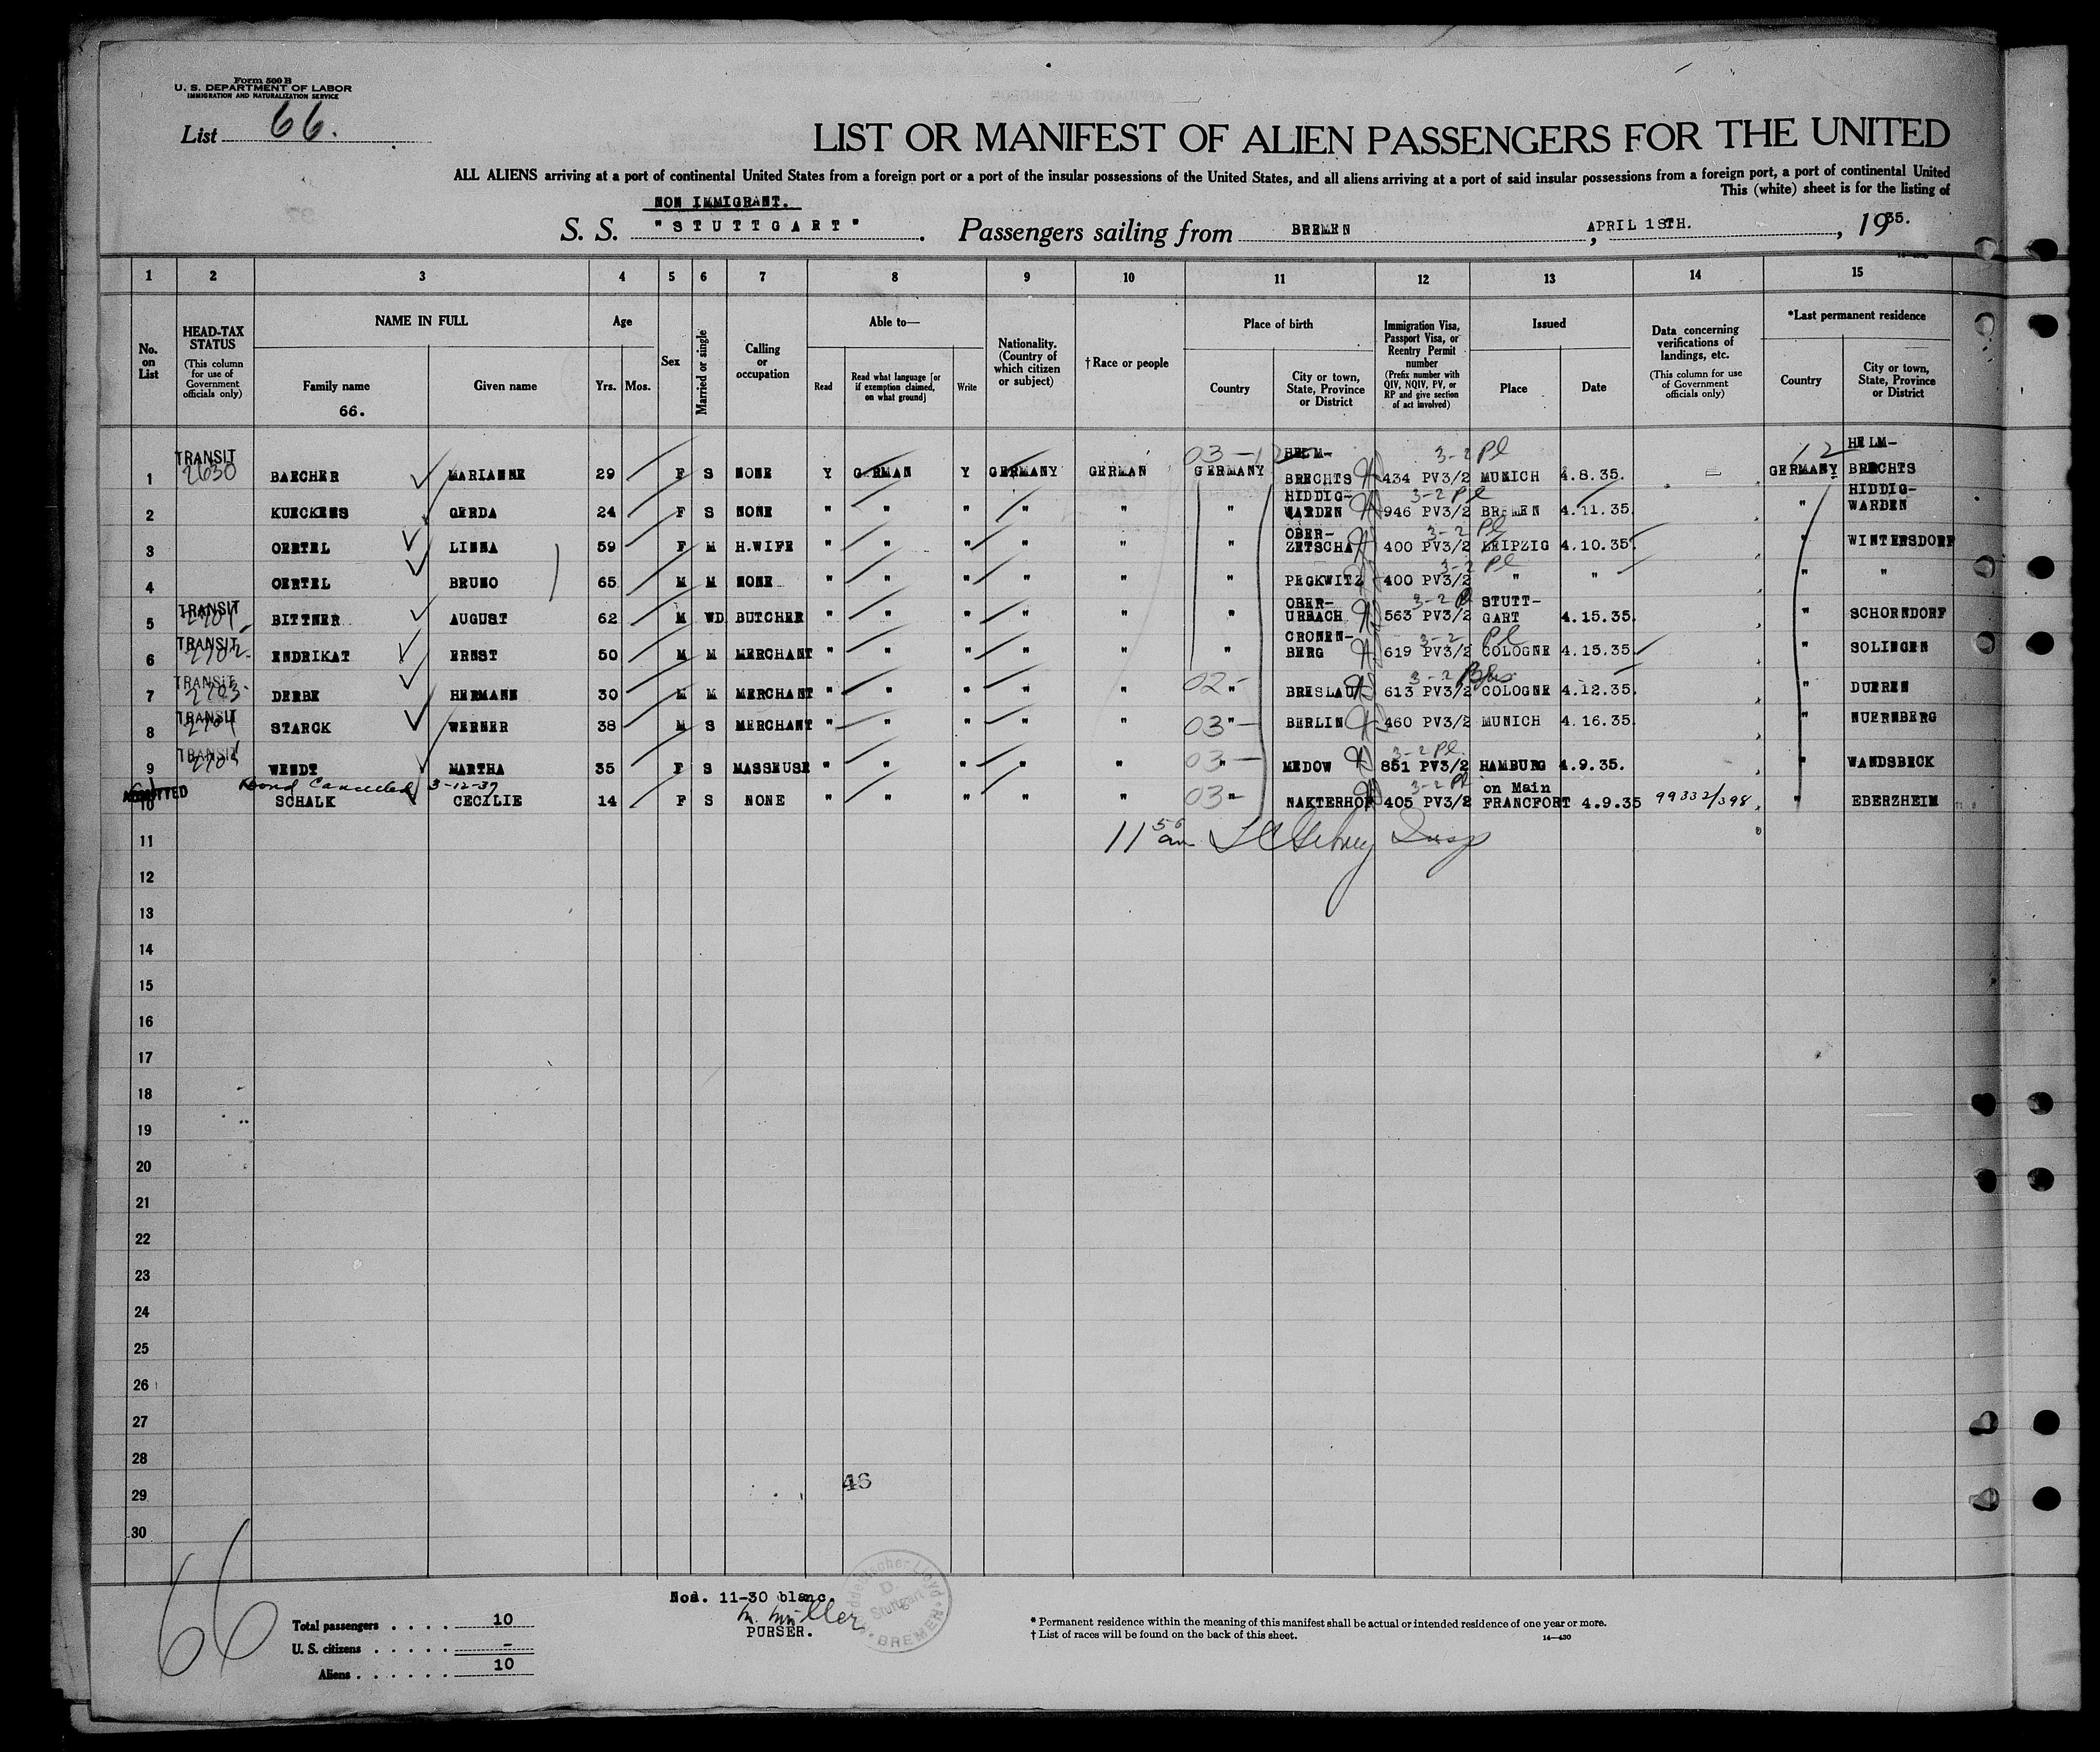 Form 500 B
U. S. DEPARTMENT OF LABOR
IMMIGRATION AND NATURALIZATION SERVICE
List 66.
LIST OR MANIFEST OF ALIEN PASSENGERS FOR THE UNITED
ALL ALIENS arriving at a port of continental United States from a foreign port or a port of the insular possessions of the United States, and all aliens arriving at a port of said insular possessions from a foreign port, a port of continental United
This (white) sheet is for the listing of
NON IMMIGRANT.
S. S. "STUTTGART". Passengers sailing from BREMEN, APRIL 18TH., 1935.
1 2 3 4 5 6 7 8 9 10 11 12 13 14 15
No. on List
HEAD-TAX STATUS
(This column for use of Government officials only)
NAME IN FULL
Family name
66.
Given name
Age
Yrs. Mos.
Sex
Married or single
Calling or occupation
Able to—
Read
Read what language [or if exemption claimed, on what ground]
Write
Nationality. (Country of which citizen or subject)
† Race or people
Place of birth
Country
City or town, State, Province or District
Immigration Visa, Passport Visa, or Reentry Permit number
(Prefix number with QIV, NQIV, PV, or RP and give section of act involved)
Issued
Place
Date
Data concerning verifications of landings, etc.
(This column for use of Government officials only)
*Last permanent residence
Country
City or town, State, Province or District
1 TRANSIT 2630 BAECHER MARIANNE 29 F S NONE Y GERMAN Y GERMANY GERMAN 03-12 GERMANY HELM-BRECHTS 3-2 Pl 434 PV3/2 MUNICH 4.8.35. 12 GERMANY HELM-BRECHTS
2 KUECKENS GERDA 24 F S NONE " " " " " " HIDDIG-WARDEN 3-2 Pl 946 PV3/2 BREMEN 4.11.35. " HIDDIG-WARDEN
3 OERTEL LINNA 59 F M H.WIFE " " " " " " OBER-ZETSCHA 3-2 Pl 400 PV3/2 LEIPZIG 4.10.35. " WINTERSDORF
4 OERTEL BRUNO 65 M M NONE " " " " " " PEGKWITZ 3-2 Pl 400 PV3/2 " " " "
5 TRANSIT BITTNER AUGUST 62 M WD BUTCHER " " " " " " OBER-URBACH 3-2 Pl 563 PV3/2 STUTT-GART 4.15.35. " SCHORNDORF
6 TRANSIT ENDRIKAT ERNST 50 M M MERCHANT " " " " " " CRONEN-BERG 3-2 Pl 619 PV3/2 COLOGNE 4.15.35. " SOLINGEN
7 TRANSIT DERBE HERMANN 30 M M MERCHANT " " " " " 02- " BRESLAU 3-2 613 PV3/2 COLOGNE 4.12.35. " DUEREN
8 TRANSIT STARCK WERNER 38 M S MERCHANT " " " " " 03 " - BERLIN 460 PV3/2 MUNICH 4.16.35. " NUERNBERG
9 TRANSIT WENDT MARTHA 35 F S MASSEUSE " " " " " 03 " - MEDOW 3-2 Pl. 851 PV3/2 HAMBURG 4.9.35. " WANDSBECK
Bond Cancelled 3-12-37
10 ADMITTED SCHALK CECILIE 14 F S NONE " " " " " 03 " - NAKTERHOF 3-2 Pl 405 PV3/2 on Main FRANCFORT 4.9.35 99332/398 " EBERZHEIM
11 11 56 am Insp
12
13
14
15
16
17
18
19
20
21
22
23
24
25
26
27
28
29
30
46
66
Nos. 11-30 blanc.
M. Müller
PURSER.
Norddeutscher Lloyd
D. Stuttgart
BREMEN
Total passengers . . . . 10
U. S. citizens . . . . . –
Aliens . . . . . . 10
* Permanent residence within the meaning of this manifest shall be actual or intended residence of one year or more.
† List of races will be found on the back of this sheet.
14—430